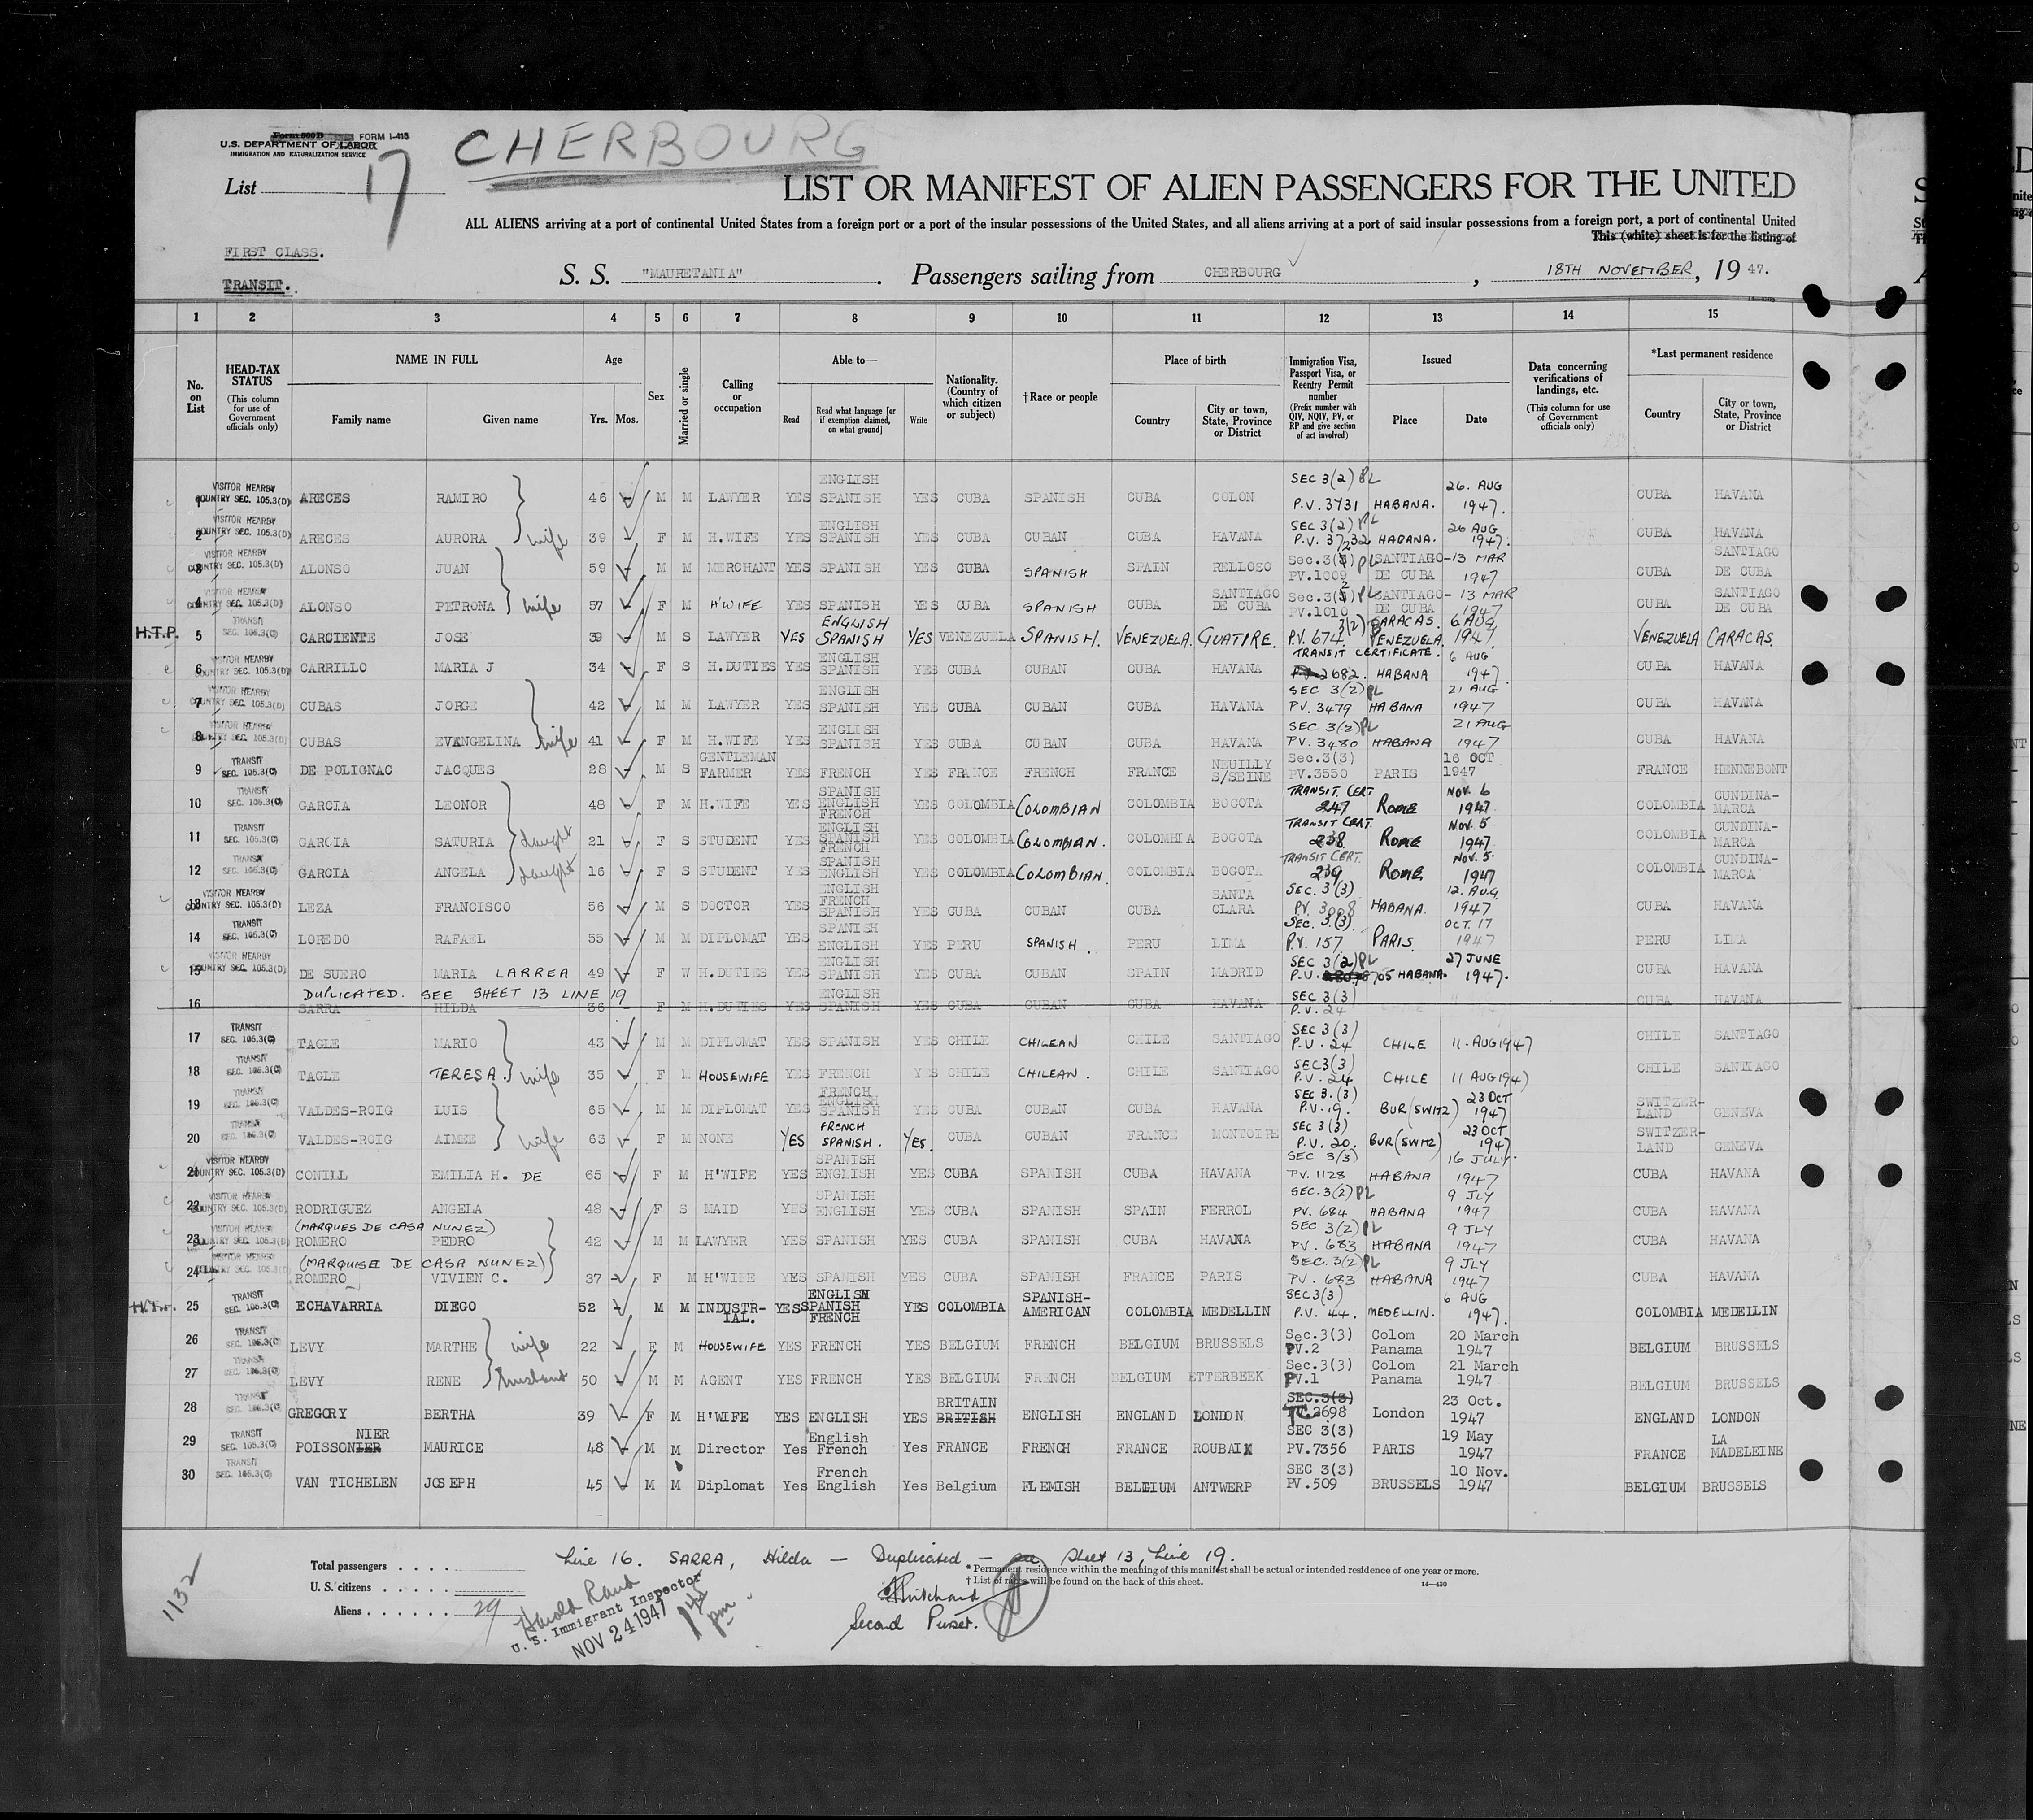 Form 500B FORM I-415
U.S. DEPARTMENT OF LABOR
IMMIGRATION AND NATURALIZATION SERVICE
CHERBOURG
List 17
LIST OR MANIFEST OF ALIEN PASSENGERS FOR THE UNITED
ALL ALIENS arriving at a port of continental United States from a foreign port or a port of the insular possessions of the United States, and all aliens arriving at a port of said insular possessions from a foreign port, a port of continental United
This (white) sheet is for the listing of
FIRST CLASS.
TRANSIT.
S. S. "MAURETANIA". Passengers sailing from CHERBOURG, 18TH NOVEMBER, 1947.
1 2 3 4 5 6 7 8 9 10 11 12 13 14 15
No. on List
HEAD-TAX STATUS (This column for use of Government officials only)
NAME IN FULL Family name Given name
Age Yrs. Mos.
Sex
Married or single
Calling or occupation
Able to— Read Read what language [or if exemption claimed, on what ground] Write
Nationality. (Country of which citizen or subject)
†Race or people
Place of birth Country City or town, State, Province or District
Immigration Visa, Passport Visa, or Reentry Permit number (Prefix number with QIV, NQIV, PV, or RP and give section of act involved)
Issued Place Date
Data concerning verifications of landings, etc. (This column for use of Government officials only)
*Last permanent residence Country City or town, State, Province or District
1 VISITOR NEARBY COUNTRY SEC. 105.3(D) ARECES RAMIRO 46 M M LAWYER YES ENGLISH SPANISH YES CUBA SPANISH CUBA COLON SEC 3(2) PL P.V. 3731 HABANA. 26. AUG 1947. CUBA HAVANA
2 VISITOR NEARBY COUNTRY SEC. 105.3(D) ARECES AURORA wife 39 F M H.WIFE YES ENGLISH SPANISH YES CUBA CUBAN CUBA HAVANA SEC 3(2) PL P.V. 3732 HABANA. 26 AUG 1947. CUBA HAVANA
3 VISITOR NEARBY COUNTRY SEC. 105.3(D) ALONSO JUAN 59 M M MERCHANT YES SPANISH YES CUBA SPANISH SPAIN RELLOSO Sec.3(2) PL PV.1009 SANTIAGO DE CUBA 13 MAR 1947 CUBA SANTIAGO DE CUBA
4 VISITOR NEARBY COUNTRY SEC. 105.3(D) ALONSO PETRONA wife 57 F M H'WIFE YES SPANISH YES CUBA SPANISH CUBA SANTIAGO DE CUBA Sec.3(2) PL PV.1010 SANTIAGO DE CUBA 13 MAR 1947 CUBA SANTIAGO DE CUBA
H.T.P. 5 TRANSIT SEC. 105.3(C) CARCIENTE JOSE 39 M S LAWYER YES ENGLISH SPANISH YES VENEZUELA SPANISH. VENEZUELA. GUATIRE. 3(2) P.V. 674 CARACAS. VENEZUELA 6 AUG 1947 VENEZUELA CARACAS.
6 VISITOR NEARBY COUNTRY SEC. 105.3(D) CARRILLO MARIA J 34 F S H.DUTIES YES ENGLISH SPANISH YES CUBA CUBAN CUBA HAVANA TRANSIT CERTIFICATE. 2682. HABANA 6 AUG 1947 CUBA HAVANA
7 VISITOR NEARBY COUNTRY SEC. 105.3(D) CUBAS JORGE 42 M M LAWYER YES ENGLISH SPANISH YES CUBA CUBAN CUBA HAVANA SEC 3(2) PL PV. 3479 HABANA 21 AUG 1947 CUBA HAVANA
8 VISITOR NEARBY COUNTRY SEC. 105.3(D) CUBAS EVANGELINA wife 41 F M H.WIFE YES ENGLISH SPANISH YES CUBA CUBAN CUBA HAVANA SEC 3(2) PL PV. 3480 HABANA 21 AUG 1947 CUBA HAVANA
9 TRANSIT SEC. 105.3(C) DE POLIGNAC JACQUES 28 M S GENTLEMAN FARMER YES FRENCH YES FRANCE FRENCH FRANCE NEUILLY S/SEINE Sec.3(3) PV.3550 PARIS 16 OCT 1947 FRANCE HENNEBONT
10 TRANSIT SEC. 105.3(C) GARCIA LEONOR 48 F M H.WIFE YES SPANISH ENGLISH FRENCH YES COLOMBIA COLOMBIAN COLOMBIA BOGOTA TRANSIT. CERT 247 ROME NOV. 6 1947 COLOMBIA CUNDINA-MARCA
11 TRANSIT SEC. 105.3(C) GARCIA SATURIA daught 21 F S STUDENT YES ENGLISH SPANISH FRENCH YES COLOMBIA COLOMBIAN. COLOMBIA BOGOTA TRANSIT CERT. 238 ROME NOV. 5 1947. COLOMBIA CUNDINA-MARCA
12 TRANSIT SEC. 105.3(C) GARCIA ANGELA daught 16 F S STUDENT YES SPANISH ENGLISH YES COLOMBIA COLOMBIAN. COLOMBIA BOGOTA TRANSIT CERT. 239 ROME NOV. 5. 1947 COLOMBIA CUNDINA-MARCA
13 VISITOR NEARBY COUNTRY SEC. 105.3(D) LEZA FRANCISCO 56 M S DOCTOR YES ENGLISH FRENCH SPANISH YES CUBA CUBAN CUBA SANTA CLARA SEC. 3(3) PV. 3008 HABANA. 12. AUG 1947 CUBA HAVANA
14 TRANSIT SEC. 105.3(C) LOREDO RAFAEL 55 M M DIPLOMAT YES SPANISH ENGLISH YES PERU SPANISH. PERU LIMA SEC. 3.(3) P.V. 157 PARIS. OCT. 17 1947 PERU LIMA
15 VISITOR NEARBY COUNTRY SEC. 105.3(D) DE SUERO MARIA LARREA 49 F W H.DUTIES YES ENGLISH SPANISH YES CUBA CUBAN SPAIN MADRID SEC 3(2) PL P.V. 705 HABANA. 27 JUNE 1947. CUBA HAVANA
DUPLICATED. SEE SHEET 13 LINE 19
16 SARRA HILDA 36 F M H.DUTIES YES ENGLISH SPANISH YES CUBA CUBAN CUBA HAVANA SEC 3(3) P.V. 24 CUBA HAVANA
17 TRANSIT SEC. 105.3(C) TAGLE MARIO 43 M M DIPLOMAT YES SPANISH YES CHILE CHILEAN CHILE SANTIAGO SEC 3(3) P.V. 24 CHILE 11. AUG 1947 CHILE SANTIAGO
18 TRANSIT SEC. 105.3(C) TAGLE TERESA. wife 35 F M HOUSEWIFE YES FRENCH YES CHILE CHILEAN. CHILE SANTIAGO SEC3(3) P.V. 24 CHILE 11 AUG 1947 CHILE SANTIAGO
19 TRANSIT SEC. 105.3(C) VALDES-ROIG LUIS 65 M M DIPLOMAT YES FRENCH ENGLISH SPANISH YES CUBA CUBAN CUBA HAVANA SEC 3.(3) P.V. 19. BUR (SWITZ) 23 OCT 1947 SWITZER-LAND GENEVA
20 TRANSIT SEC. 105.3(C) VALDES-ROIG AIMEE wife 63 F M NONE YES FRENCH SPANISH. YES. CUBA CUBAN FRANCE MONTOIRE SEC 3(3) P.V. 20. BUR (SWITZ) 23 OCT 1947 SWITZER-LAND GENEVA
21 VISITOR NEARBY COUNTRY SEC. 105.3(D) CONILL EMILIA H. DE 65 F M H'WIFE YES SPANISH ENGLISH YES CUBA SPANISH CUBA HAVANA SEC 3(3) PV. 1128 HABANA 16 JULY. 1947 CUBA HAVANA
22 VISITOR NEARBY COUNTRY SEC. 105.3(D) RODRIGUEZ ANGELA 48 F S MAID YES SPANISH ENGLISH YES CUBA SPANISH SPAIN FERROL SEC.3(2) PL PV. 684 HABANA 9 JLY 1947 CUBA HAVANA
(MARQUES DE CASA NUNEZ)
23 VISITOR NEARBY COUNTRY SEC. 105.3(D) ROMERO PEDRO 42 M M LAWYER YES SPANISH YES CUBA SPANISH CUBA HAVANA SEC 3(2) PL PV. 683 HABANA 9 JLY 1947 CUBA HAVANA
(MARQUISE DE CASA NUNEZ)
24 VISITOR NEARBY COUNTRY SEC. 105.3(D) ROMERO VIVIEN C. 37 F M H'WIFE YES SPANISH YES CUBA SPANISH FRANCE PARIS SEC.3(2) PL PV. 683 HABANA 9 JLY 1947 CUBA HAVANA
H.T.P. 25 TRANSIT SEC. 105.3(C) ECHAVARRIA DIEGO 52 M M INDUSTR-IAL. YES ENGLISH SPANISH FRENCH YES COLOMBIA SPANISH-AMERICAN COLOMBIA MEDELLIN SEC3(3) P.V. 44. MEDELLIN. 6 AUG 1947. COLOMBIA MEDELLIN
26 TRANSIT SEC. 105.3(C) LEVY MARTHE wife 22 F M HOUSEWIFE YES FRENCH YES BELGIUM FRENCH BELGIUM BRUSSELS Sec.3(3) PV.2 Colom Panama 20 March 1947 BELGIUM BRUSSELS
27 TRANSIT SEC. 105.3(C) LEVY RENE husband 50 M M AGENT YES FRENCH YES BELGIUM FRENCH BELGIUM ETTERBEEK Sec.3(3) PV.1 Colom Panama 21 March 1947 BELGIUM BRUSSELS
28 TRANSIT SEC. 105.3(C) GREGORY BERTHA 39 F M H'WIFE YES ENGLISH YES BRITAIN BRITISH ENGLISH ENGLAND LONDON SEC.3(3) TC.2698 London 23 Oct. 1947 ENGLAND LONDON
29 TRANSIT SEC. 105.3(C) POISSONIER NIER MAURICE 48 M M Director Yes English French Yes FRANCE FRENCH FRANCE ROUBAIX SEC 3(3) PV.7356 PARIS 19 May 1947 FRANCE LA MADELEINE
30 TRANSIT SEC. 105.3(C) VAN TICHELEN JOSEPH 45 M M Diplomat Yes French English Yes Belgium FLEMISH BELGIUM ANTWERP SEC 3(3) PV.509 BRUSSELS 10 Nov. 1947 BELGIUM BRUSSELS
Total passengers . . . .
U. S. citizens . . . . .
Aliens . . . . . . 29
Line 16. SARRA, Hilda — Duplicated — see Sheet 13, Line 19.
* Permanent residence within the meaning of this manifest shall be actual or intended residence of one year or more.
† List of races will be found on the back of this sheet.
14—430
Pritchard
Second Purser.
Harold Rand
U. S. Immigrant Inspector
NOV 24 1947
pm
1132